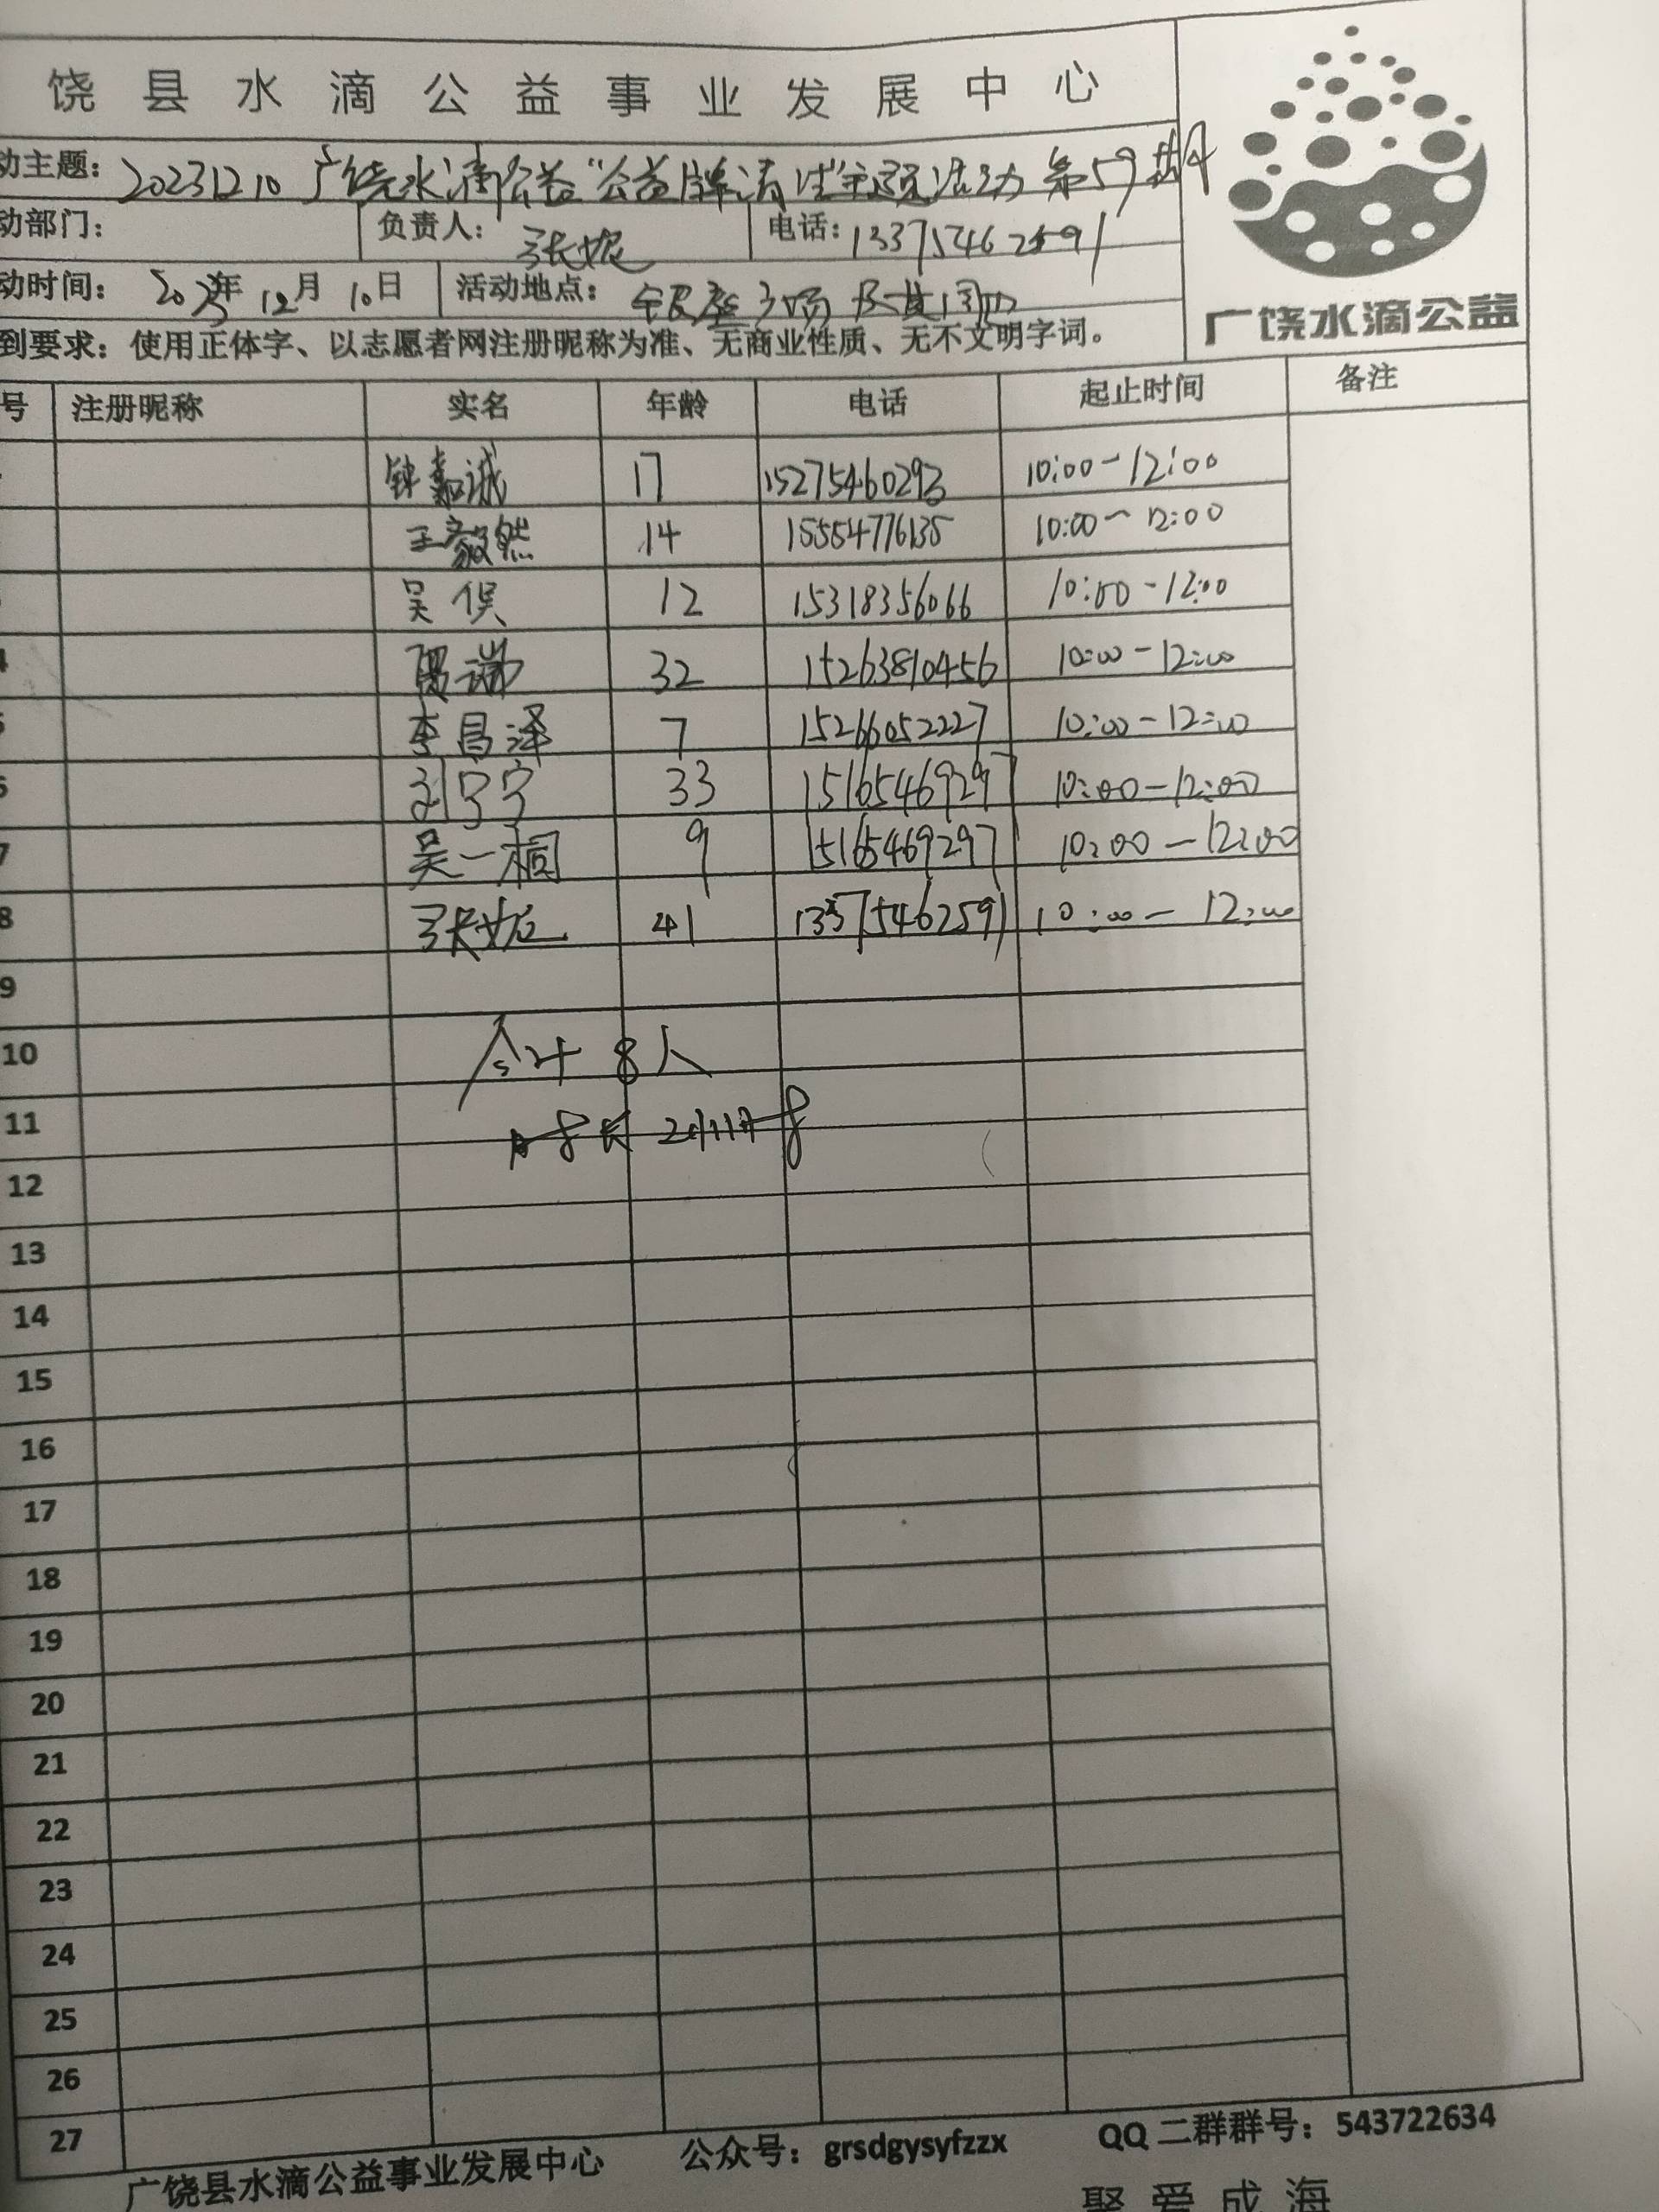 饶县水滴公益事业发展中心
动主题：20231210 广饶水滴公益“公益牌清洁”主题活动 第59期
动部门： 负责人： 张妮 电话：13375462591
动时间： 2023年 12月 10日 活动地点： 银座 广场及其周边
广饶水滴公益
到要求：使用正体字、以志愿者网注册昵称为准、无商业性质、无不文明字词。
号 注册昵称 实名 年龄 电话 起止时间 备注
钟嘉诚 17 15275460293 10:00-12:00
王毅然 14 15554776135 10:00-12:00
吴俣 12 15318356066 10:00-12:00
4 32 15263810456 10:00-12:00
5 李昌泽 7 15266052227 10:00-12:00
6 刘宁宁 33 15165469297 10:00-12:00
7 吴一桐 9 15165469297 10:00-12:00
8 张妮 41 13375462591 10:00-12:00
9
10 合计 8人
11 时长 2小时
12
13
14
15
16
17
18
19
20
21
22
23
24
25
26
27
广饶县水滴公益事业发展中心 公众号：grsdgysyfzzx QQ二群群号：543722634
聚爱成海